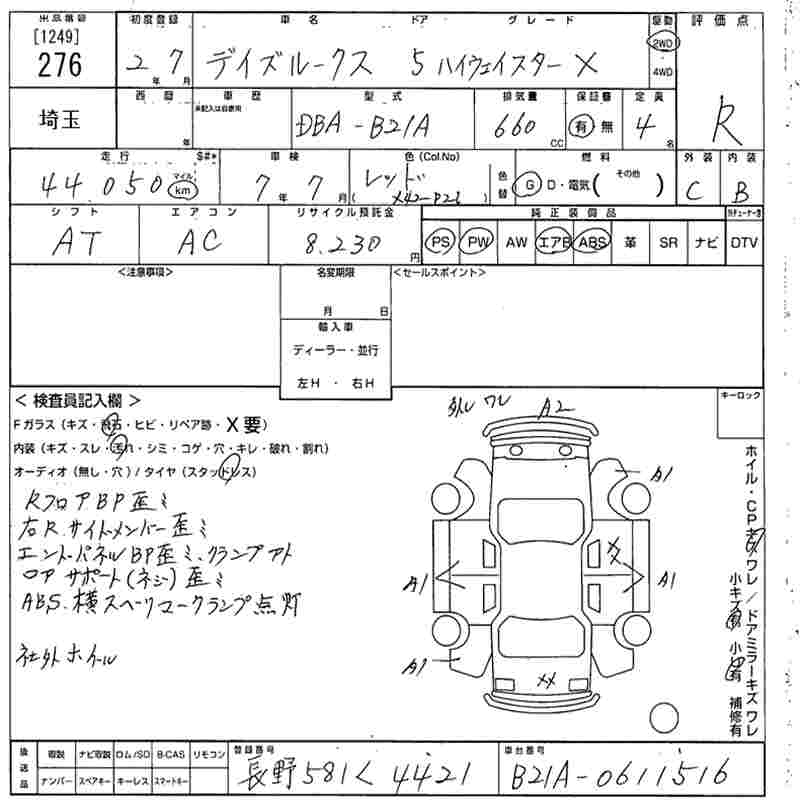 出品番号 初度登録 車名 ドア グレード 駆動 評価点
[1249]
276 2年 7月 デイズルークス 5 ハイウェイスター X 2WD 4WD R
埼玉 西暦 年 車歴 ※記入は自家用 型式 DBA-B21A 排気量 660 CC 保証書 有 無 定員 4名
走行 $#* 44.050 マイル km 車検 7年 7月 色(Col.No) レッド 色替 燃料 G・D・電気( その他 ) 外装 C 内装 B
シフト AT エアコン AC リサイクル預託金 8.230円 純正装備品 PS PW AW エアB ABS 革 SR ナビ DTV
<注意事項> 名変期限 <セールスポイント>
月 日
輸入車
ディーラー・並行
左H ・ 右H
キーロック
<検査員記入欄>
Fガラス(キズ・飛石・ヒビ・リペア跡・X要)
内装(キズ・スレ・汚れ・シミ・コゲ・穴・キレ・破れ・割れ)
オーディオ(無し・穴)/タイヤ(スタッドレス)
RフロアBP歪ミ
右R.サイドメンバー歪ミ
エンドパネルBP歪ミ、クランプアト
ロアサポート(ネジ)歪ミ
ABS.横スベリマークランプ点灯
社外ホイール
ワレ A2
A1
A1 A1
A1
XX
XX
ワレ/ドアミラーキズ ワレ
補修有
後送品 取説 ナビ取説 ロム/SD B-CAS リモコン
ナンバー スペアキー キーレス スマートキー
登録番号 長野 581 く 4421
車台番号 B21A-0611516